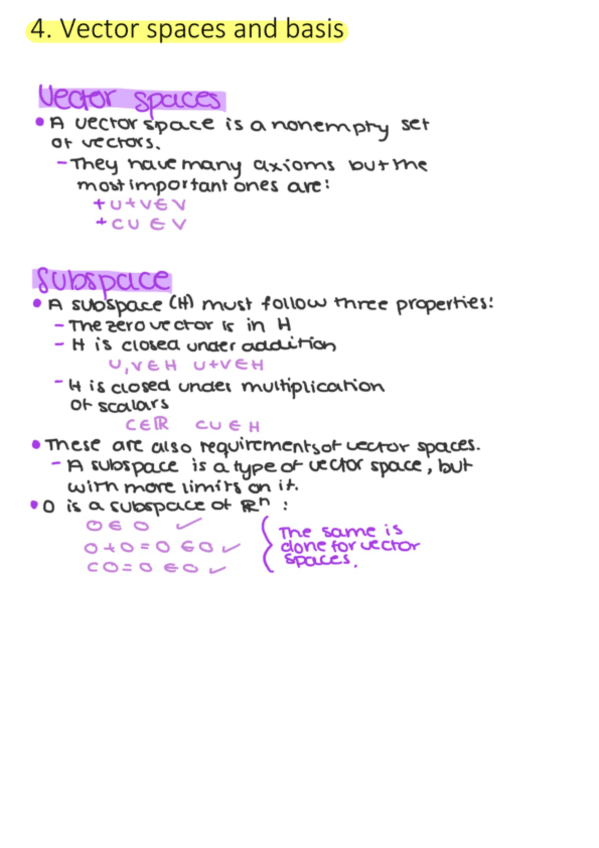 4. Vector spaces and basis
Vector spaces
• A vector space is a nonempty set
of vectors.
- They have many axioms but the
most important ones are:
+ U + V ∈ V
+ CU ∈ V
Subspace
• A subspace (H) must follow three properties:
- The zero vector is in H
- H is closed under addition
U, V ∈ H U + V ∈ H
- H is closed under multiplication
of scalars
C ∈ ℝ CU ∈ H
• These are also requirements of vector spaces.
- A subspace is a type of vector space, but
with more limits on it.
• O is a subspace of ℝⁿ :
O ∈ O ✓
O + O = O ∈ O ✓
CO = O ∈ O ✓
The same is
done for vector
spaces.